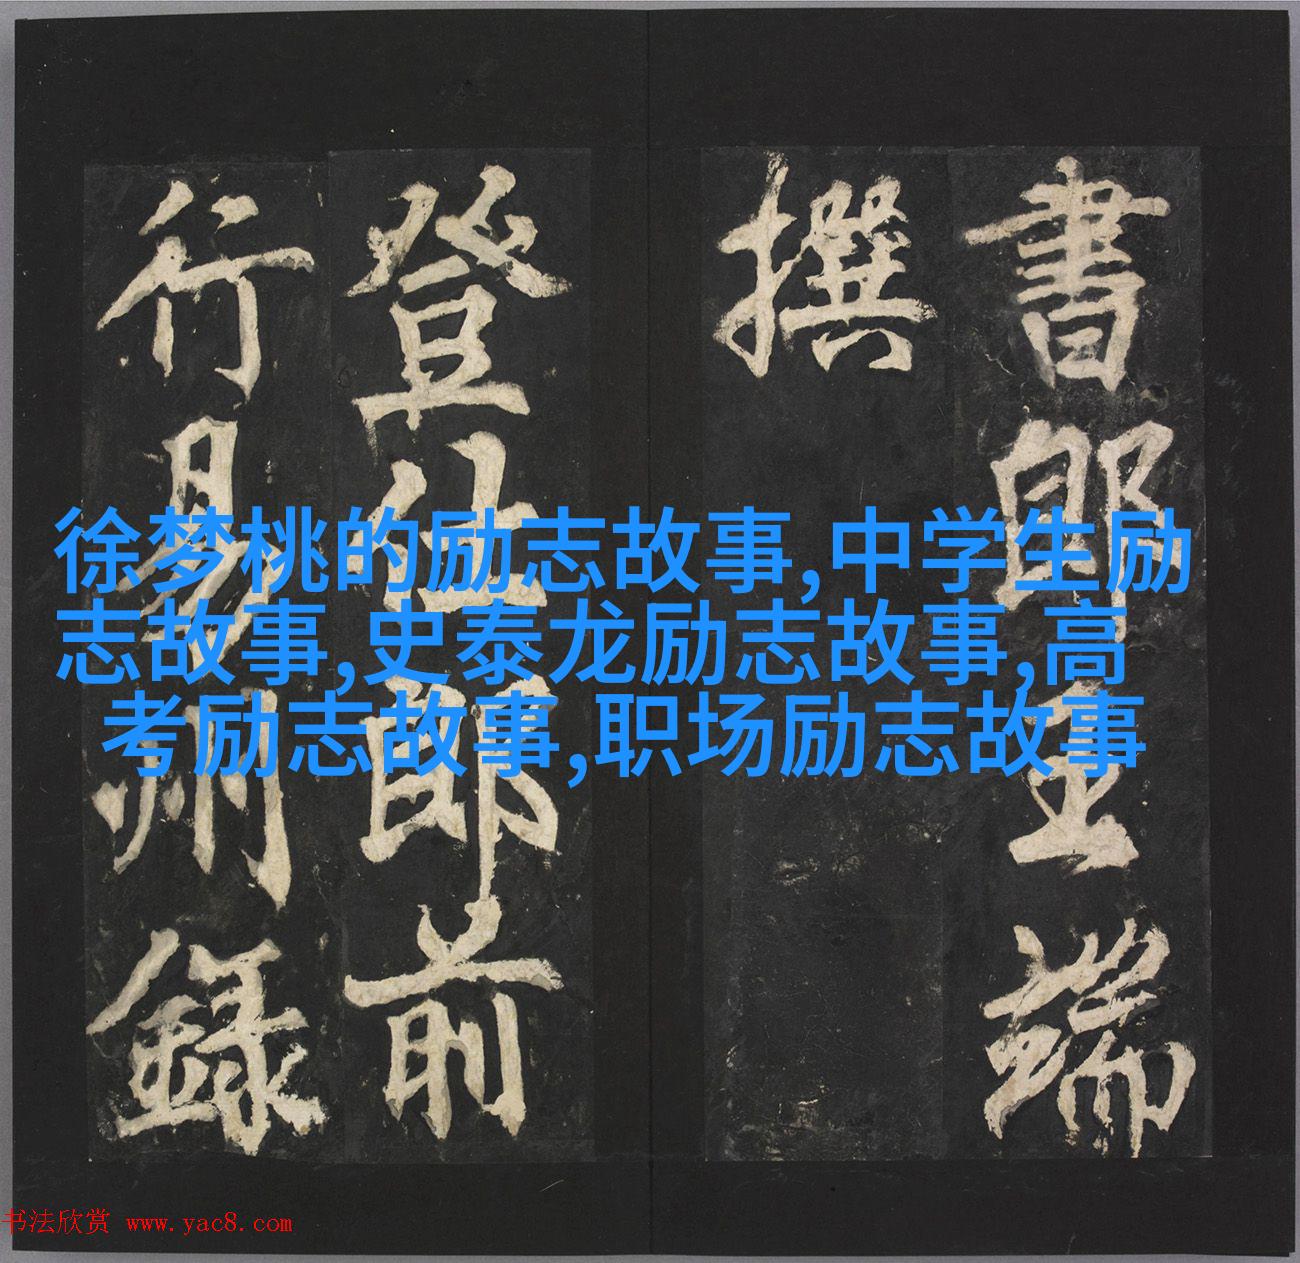 書郎王端
撰
登仕郎前
行易州錄
徐梦桃的励志故事,中学生励
志故事,史泰龙励志故事,高
考励志故事,职场励志故事
书法欣赏 www.yac8.com